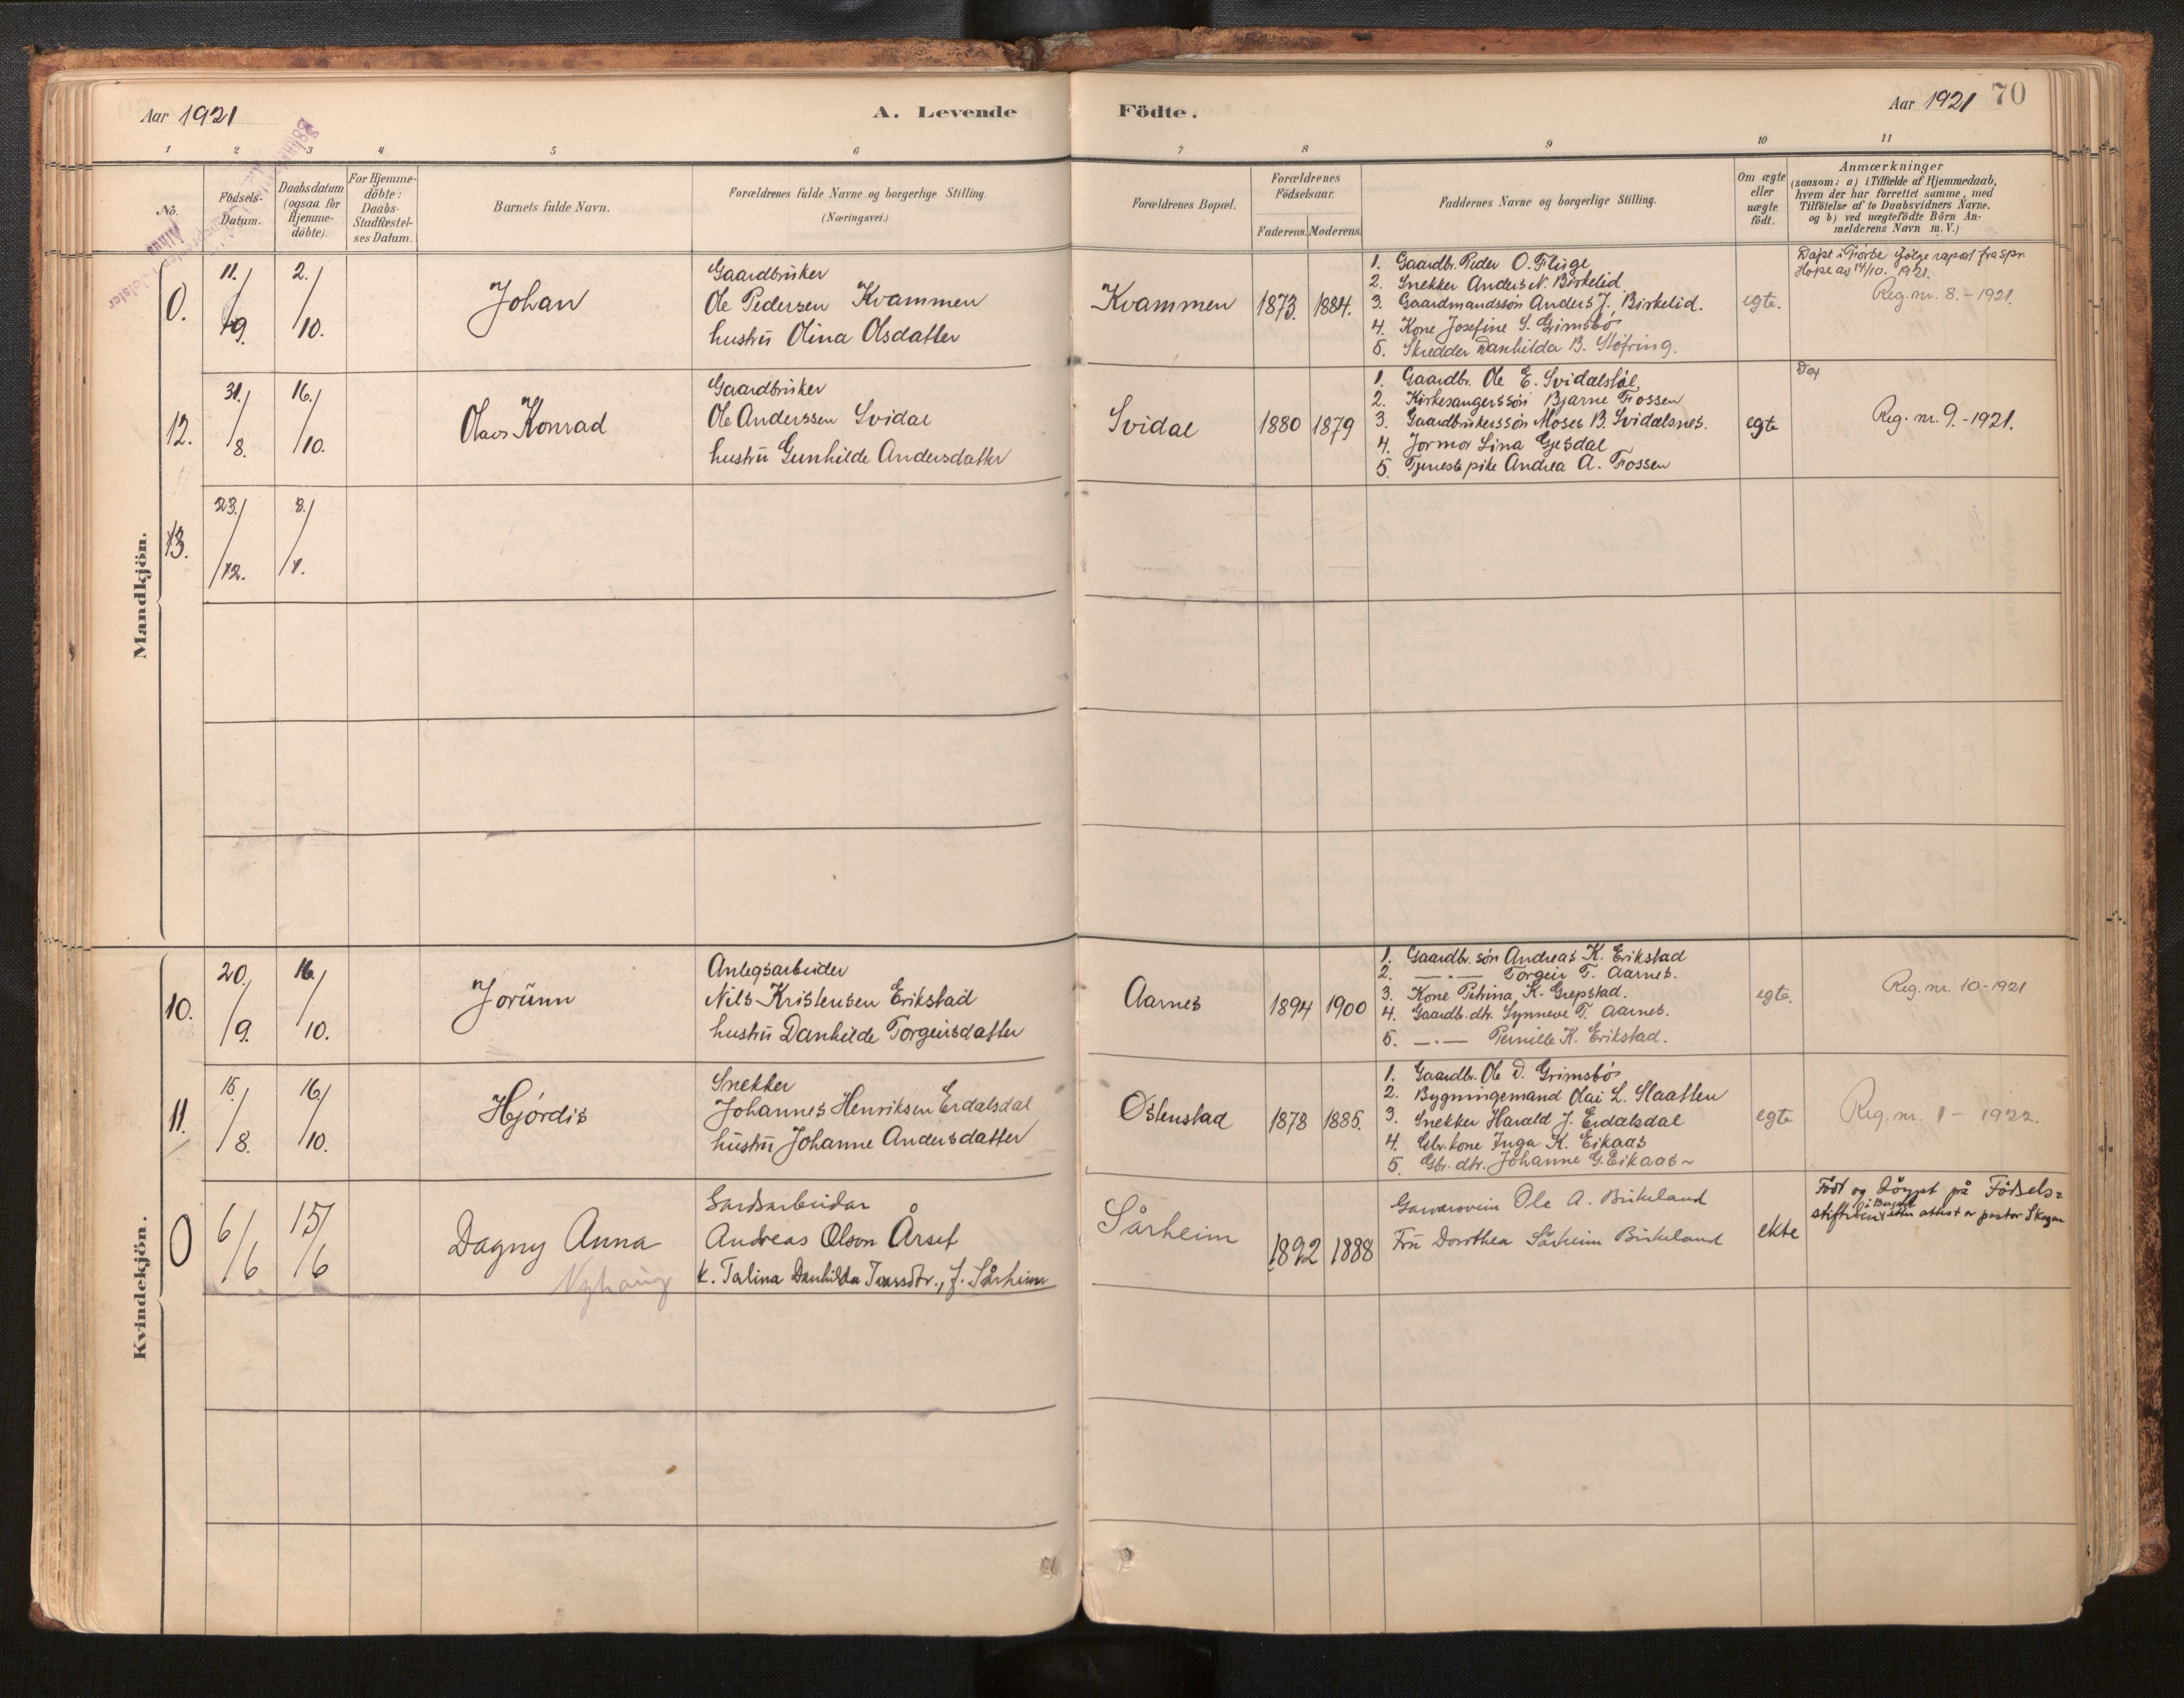 Aar 1921
A. Levende
Födte.
Aar 1921
70
1 2 3 4 5 6 7 8 9 10 11
No.
Födsels-
Datum.
Daabsdatum
(ogsaa for
Hjemme-
döbte).
For Hjemme-
döbte:
Daabs-
Stadfæstel-
ses Datum.
Barnets fulde Navn.
Forældrenes fulde Navne og borgerlige Stilling.
(Næringsvei.)
Forældrenes Bopæl.
Forældrenes
Födselsaar.
Faderens. Moderens.
Faddernes Navne og borgerlige Stilling.
Om ægte
eller
uægte
födt.
Anmærkninger
(saasom: a) i Tilfælde af Hjemmedaab,
hvem der har forrettet samme, med
Tilföielse af to Daabsvidners Navne,
og b) ved uægtefödte Börn An-
melderens Navn m. V.)
Mandkjön.
0.
11./9.
2./10.
Johan
Gaardbruker
Ole Pedersen Kvammen
hustru Olina Olsdatter
Kvammen
1873. 1884.
1. Gaardbr. Peder O. Fluge
2. Snekker Anders N. Birkelid
3. Gaardmandssön Anders J. Birkelid.
4. Kone Josefine S. Grimsbö
5. Skredder Danhilda B. Støfring.
egte.
Døpt i Förde følge rapart fra spr.
Hope av 14/10. 1921.
Reg. nr. 8. - 1921.
12.
31./8.
16./10.
Olav Konrad
Gaardbruker
Ole Anderssen Svidal
hustru Gunhilde Andersdatter
Svidal
1880 1879
1. Gaardbr. Ole E. Svidalstøl
2. Kirkesangerssön Bjarne Fossen
3. Gaardbrukerssön Moses B. Svidalsnes.
4. Jormor Lina Gjesdal
5. Tjenestepike Andrea A. Fossen
egte
Døp
Reg. nr. 9. - 1921.
13.
23./12.
8./1.
Kvindekjön.
10.
20./9.
16./10.
Jorunn
Anlegsarbeider
Nils Kristensen Erikstad
hustru Danhilde Torgeirsdatter
Aarnes
1894 1900
1. Gaardbr. sön Andreas K. Erikstad
2. —·— Torgeir T. Aarnes.
3. Kone Petrina K. Grepstad.
4. Gaardb. dtr. Synneve T. Aarnes.
5. —·— Pernille K. Erikstad.
egte.
Reg. nr. 10 - 1921
11.
15./8.
16/10.
Hjördis
Snekker
Johannes Henriksen Erdalsdal
hustru Johanne Andersdatter
Ostenstad
1878 1885.
1. Gaardbr. Ole D. Grimsbö
2. Bygningsmand Olai L. Slaatten
3. Snekker Harald J. Erdalsdal
4. Gbr. kone Inga K. Eikaas
5. Gbr. dtr. Johanne G. Eikaas
egte
Reg. nr. 1 - 1922.
0
6/6
15/6
Dagny Anna
Nyhaug
Gardsarbeidar
Andreas Olson Årset
k. Talina Danhilda Ivarsdtr., f. Sårheim
Sårheim
1892 1888
Ole A. Birkeland
Fru Dorothea Sårheim Birkeland
ekte
Född og döypt på Födsels=
stiftelsen i Bergen etter attest av pastor Skagen